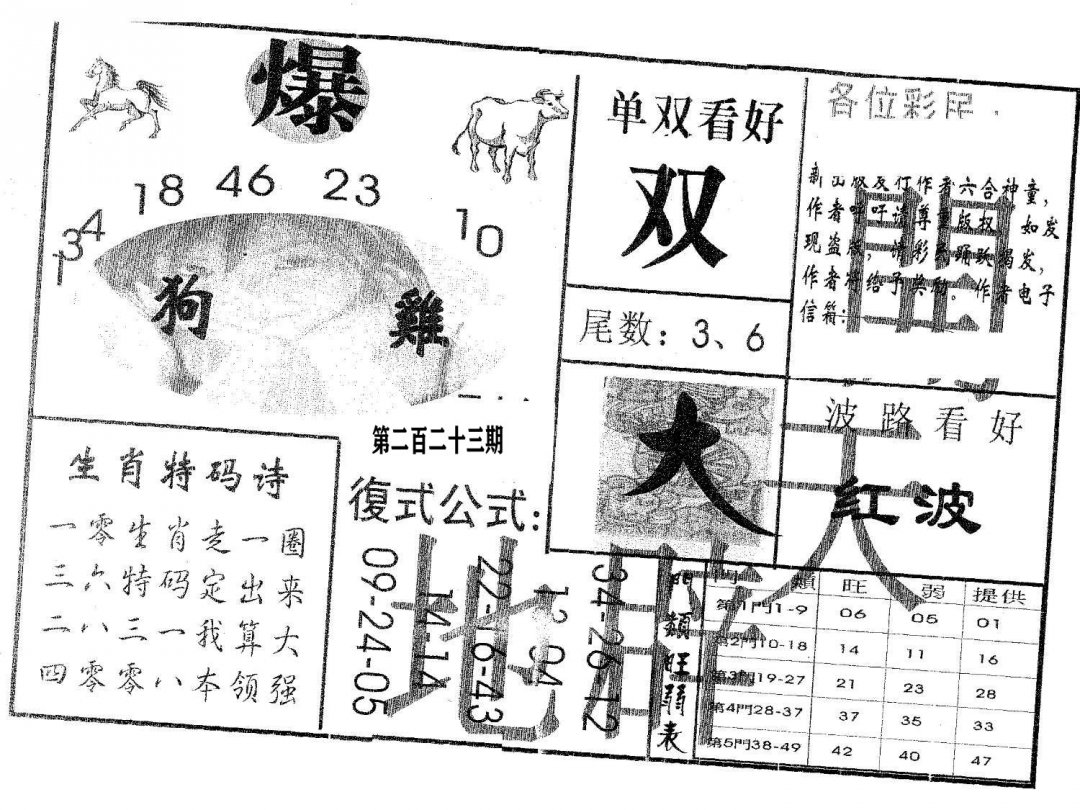 爆
18 46 23
34
10
1
狗 雞
单双看好
双
尾数：3、6
各位彩民
作者六合神童，
如发
作者电子
信箱：
大
波路看好
红波
第二百二十三期
生肖特码诗
一零生肖走一圈
三六特码定出来
二八三一我算大
四零零八本领强
復式公式：
09-24-05
14-14
22-16-43
12 04
34-26-12
門類旺弱表
門 類 旺 弱 提供
第1門1-9 06 05 01
第2門10-18 14 11 16
第3門19-27 21 23 28
第4門28-37 37 35 33
第5門38-49 42 40 47